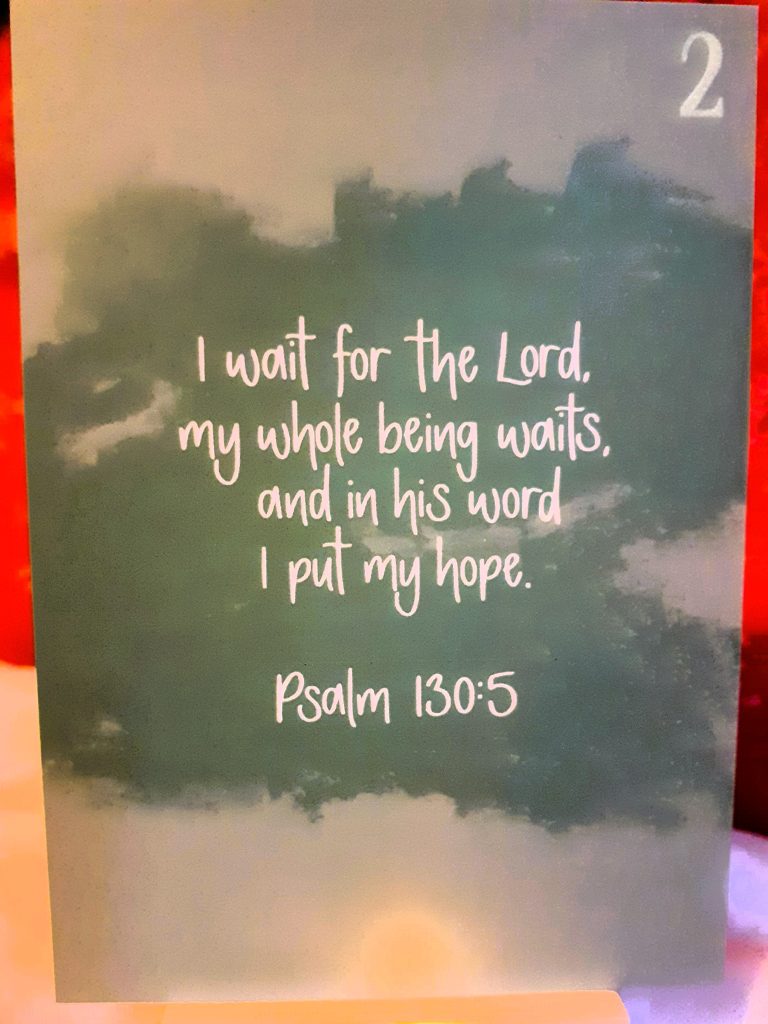 2
I wait for the Lord,
my whole being waits,
and in his word
I put my hope.
Psalm 130:5